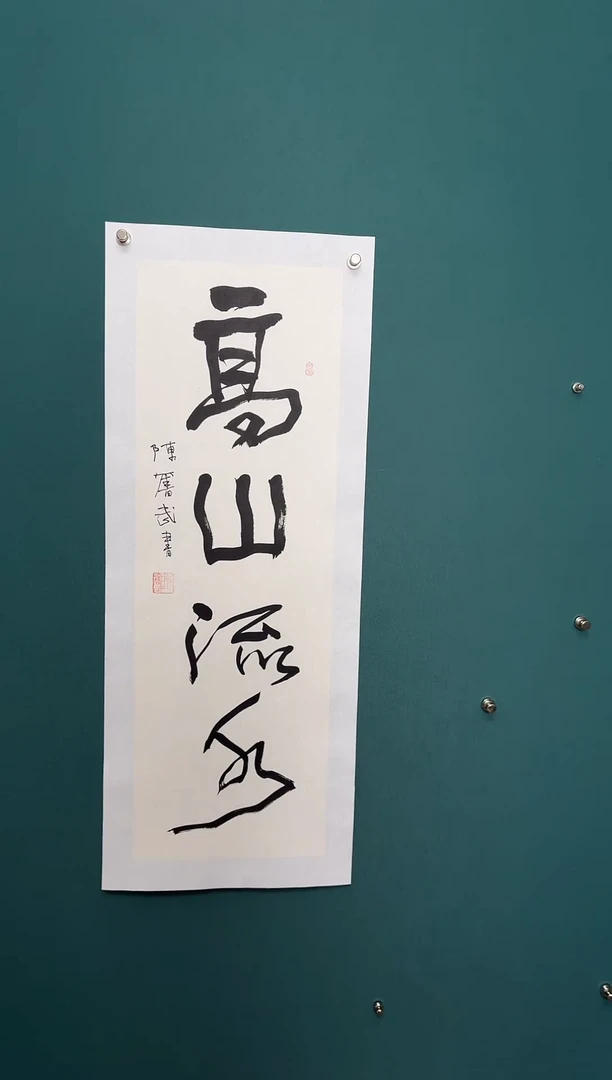 高山流水
陳 武書